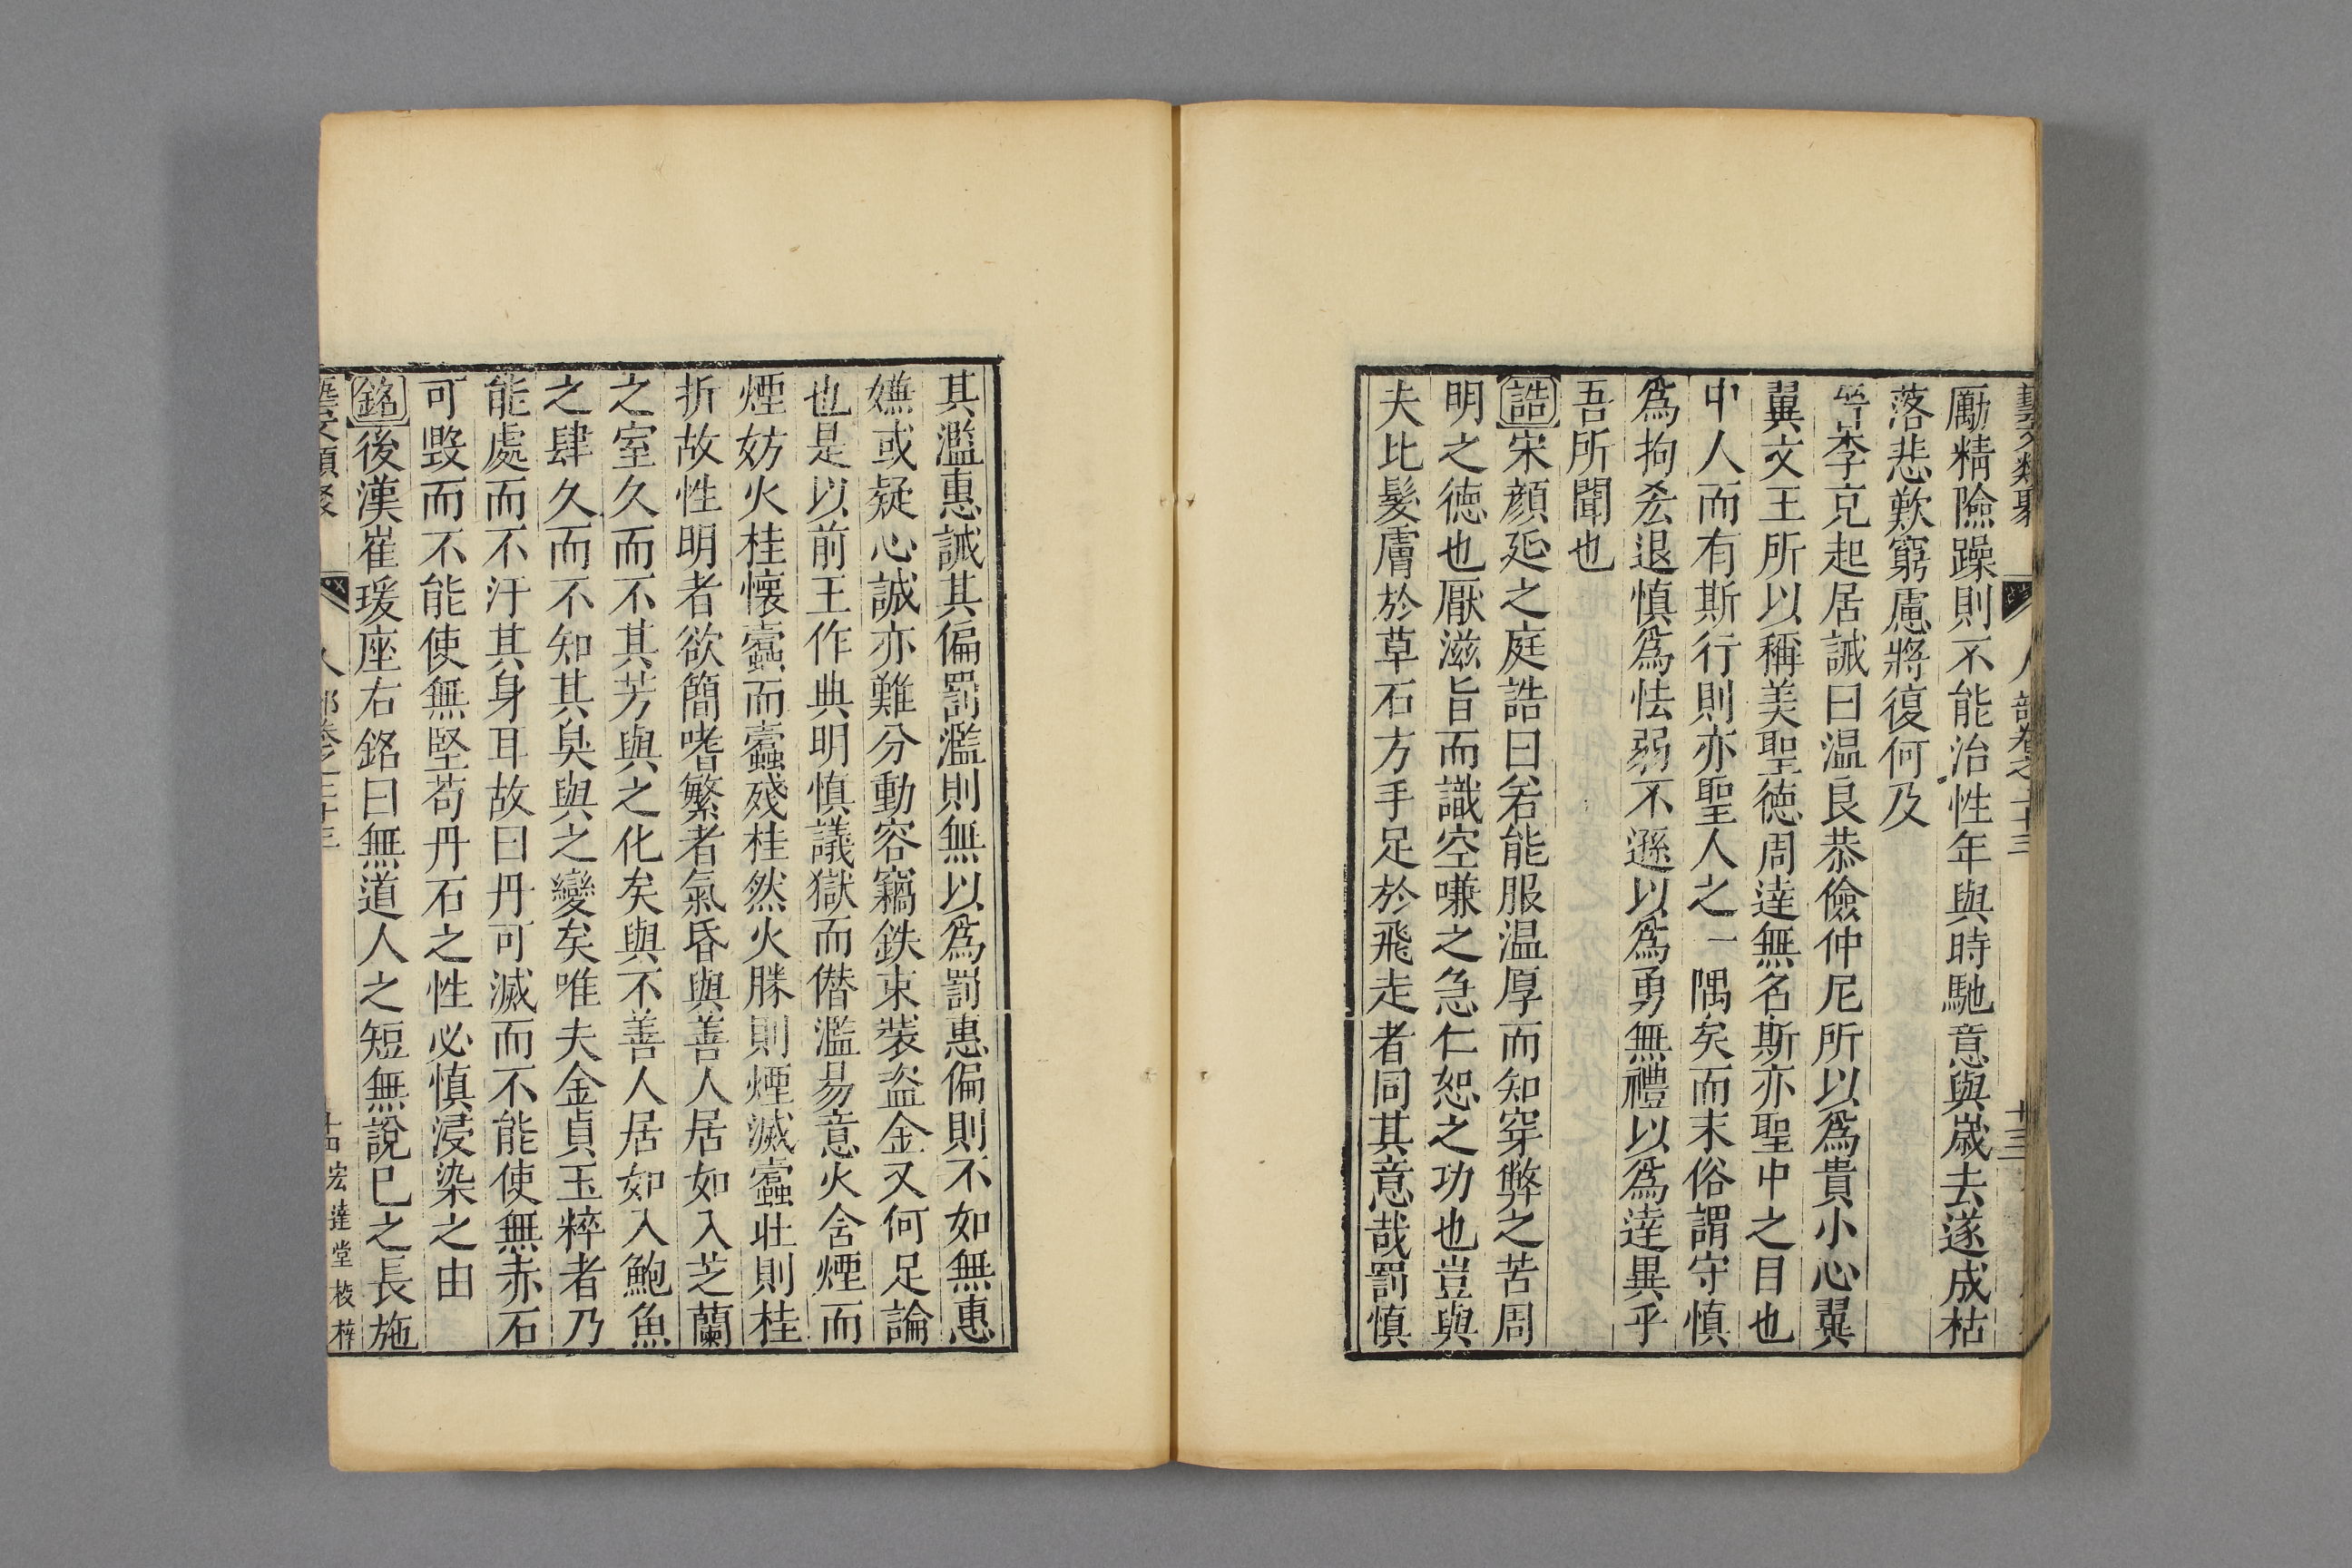 藝文類聚 人部卷之二十三 十三
勵精險躁則不能治性年與時馳意與歲去遂成枯
落悲歎窮慮將復何及
晉李克起居誡曰温良恭儉仲尼所以爲貴小心翼
翼文王所以稱美聖徳周逹無名斯亦聖中之目也
中人而有斯行則亦聖人之一隅矣而末俗謂守慎
爲拘吝退慎爲怯弱不遜以爲勇無禮以爲逹異乎
吾所聞也
誥宋顔延之庭誥曰若能服温厚而知穿弊之苦周
明之徳也厭滋旨而識空嗛之急仁恕之功也豈與
夫比髮膚於草石方手足於飛走者同其意哉罰慎
其濫惠誡其偏罰濫則無以爲罰惠偏則不如無惠
嫌或疑心誠亦難分動容竊鈇束裝盗金又何足論
也是以前王作典明慎議獄而僭濫易意火含煙而
煙妨火桂懐蠹而蠹殘桂然火勝則煙滅蠹壯則桂
折故性明者欲簡嗜繁者氣昏與善人居如入芝蘭
之室久而不其芳與之化矣與不善人居如入鮑魚
之肆久而不知其臭與之變矣唯夫金貞玉粹者乃
能處而不汙其身耳故曰丹可滅而不能使無赤石
可毀而不能使無堅苟丹石之性必慎浸染之由
銘後漢崔瑗座右銘曰無道人之短無說巳之長施
類聚 人部卷之二十三 十四 宏逹堂校梓